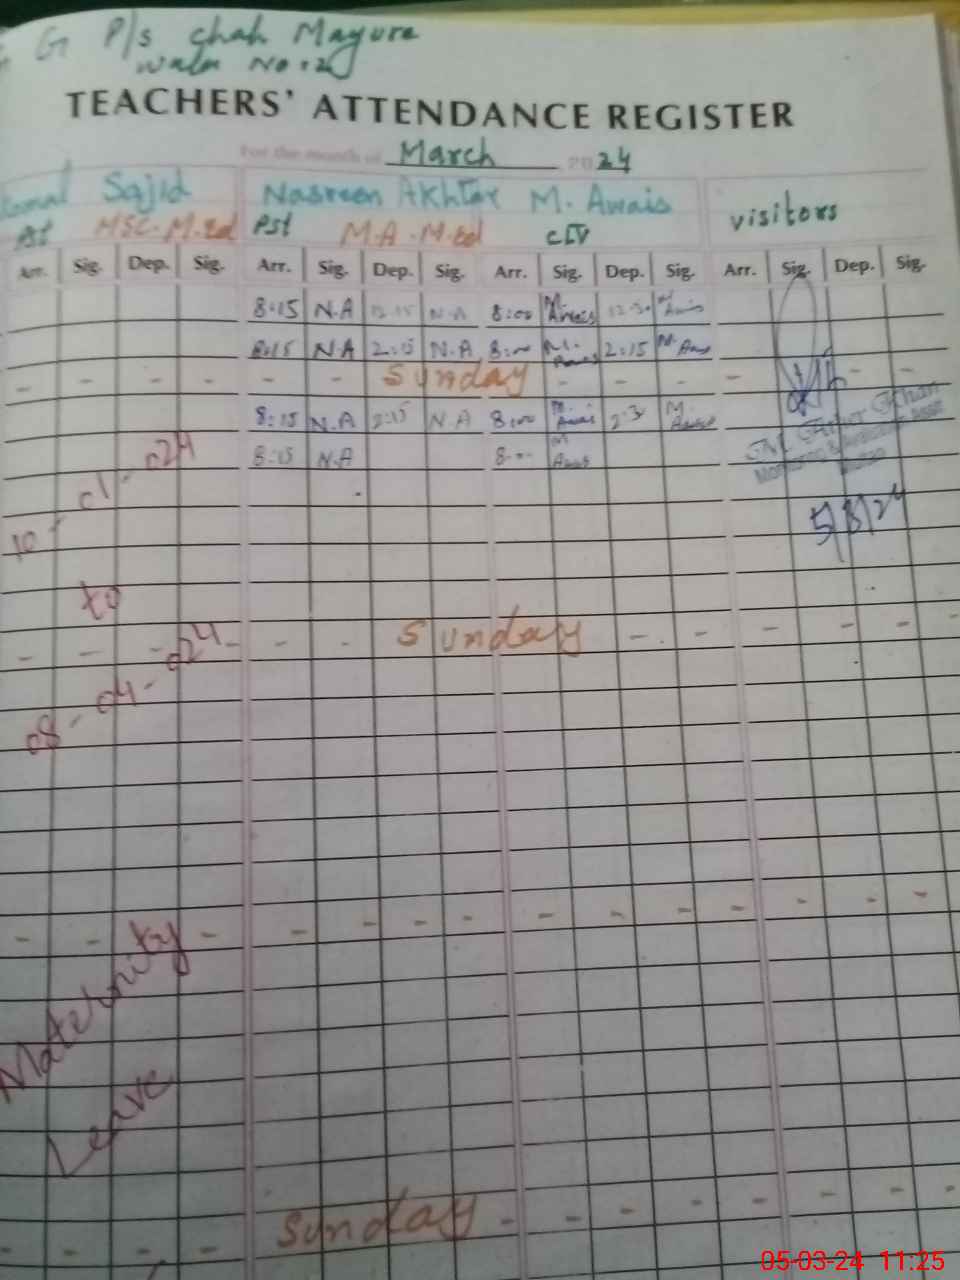 G P/s chah Mayure
wala No: 2
TEACHERS' ATTENDANCE REGISTER
For the month of March 2024
Sajid Nasreen Akhtar M. Awais visitors
Pst MSC. M.Ed Pst M.A. M.Ed
Arr. Sig. Dep. Sig. Arr. Sig. Dep. Sig. Arr. Sig. Dep. Sig. Arr. Sig. Dep. Sig.
8:15 N.A 12:15 N.A 8:00 M. Awais 12:30 M. Awais
8:15 N.A 2:15 N.A 8:00 M. Awais 2:15 M. Awais
- - - - - - Sunday - - - - -
8:15 N.A 2:15 N.A 8:00 M. Awais 2:3 M. Awais
8:15 N.A 8:00 M. Awais
Khan
5/3/24
10-01-024
to
- - - - - - Sunday - - - - -
08-04-024
- - - - - - - - - - - - - -
Maternity
Leave
- - - - Sunday - - - - - - -
05-03-24 11:25